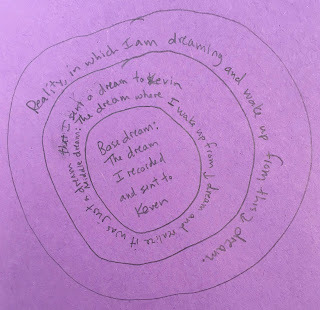 Reality, in which I am dreaming and wake up from this dream.
Middle dream: The dream where I wake up from dream and realize it was just a dream that I sent a dream to Kevin
Base dream:
The dream
I recorded
and sent to
Keven